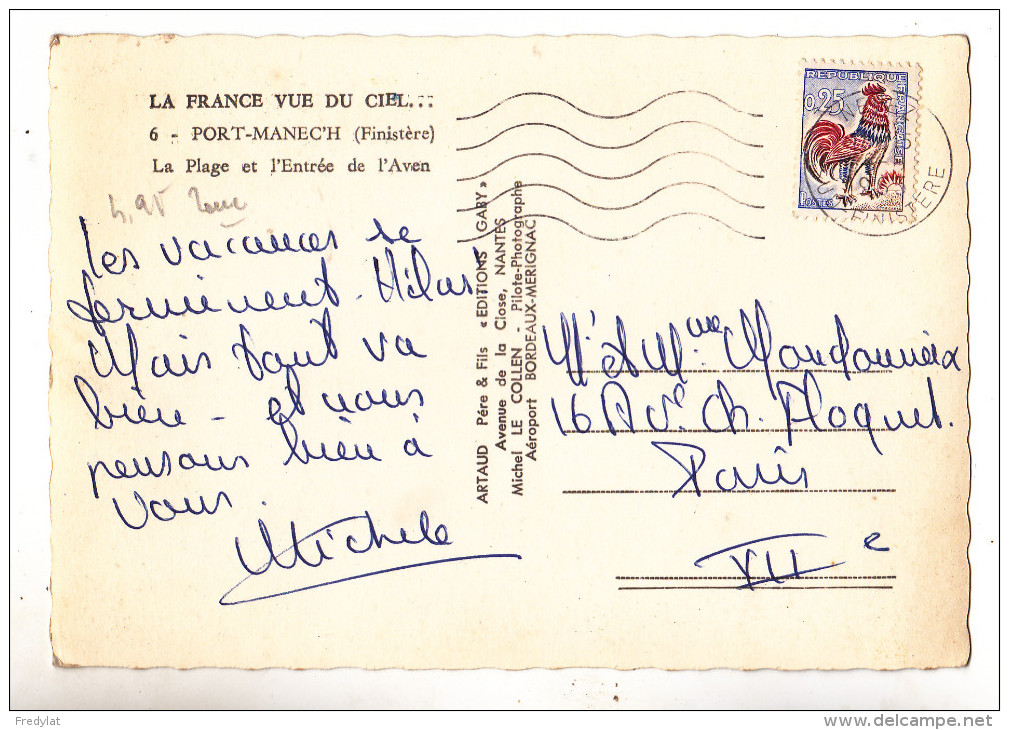 LA FRANCE VUE DU CIEL...
6 - PORT-MANEC'H (Finistère)
La Plage et l'Entrée de l'Aven
4,95
Les vacances se
terminent. Hélas!
Mais tout va
bien - et nous
pensons bien à
vous.
Michele
ARTAUD Père & Fils « EDITIONS GABY »
Avenue de la Close, NANTES
Michel LE COLLEN - Pilote-Photographe
Aéroport BORDEAUX-MERIGNAC
REPUBLIQUE FRANÇAISE
0,25
POSTES
FINISTERE
Mr et Mme
16 Av. Ch. Floquet.
Paris
VII e
Fredylat
www.delcampe.net